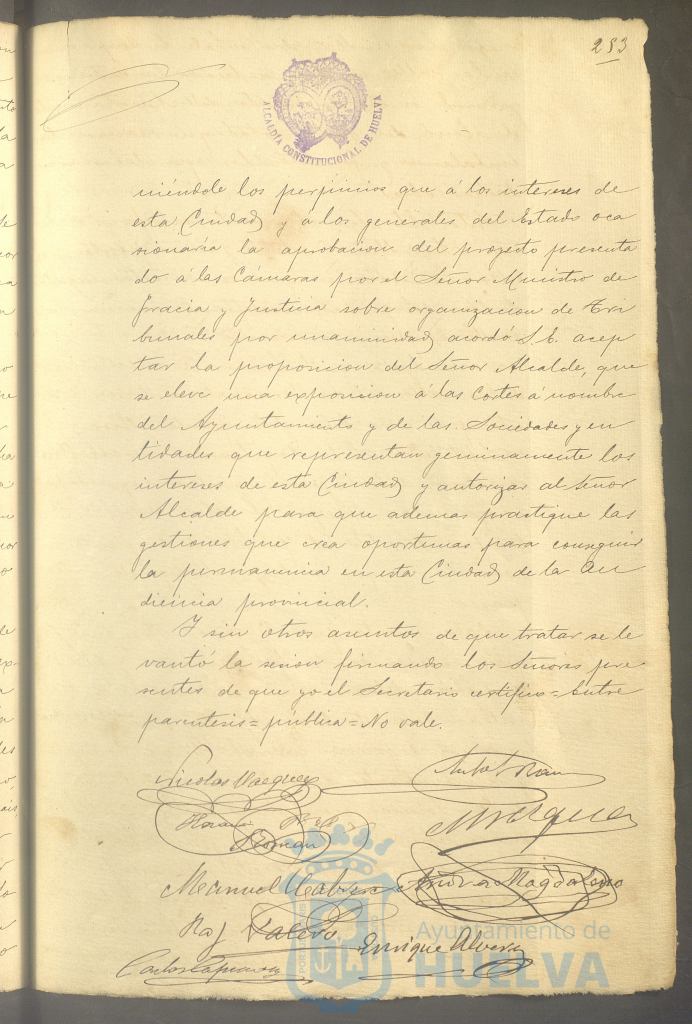 253
ALCALDÍA CONSTITUCIONAL DE HUELVA
niéndole los perjuicios que á los intereses de
esta Ciudad y a los generales del Estado oca
sionaria la aprobacion del proyecto presenta
do á las Cámaras por el Señor Ministro de
Gracia y Justicia sobre organizacion de Tri
bunales por unanimidad acordó S. E. acep
tar la proposicion del Señor Alcalde, que
se eleve una exposicion á las Cortes á nombre
del Ayuntamiento y de las Sociedades y en
tidades que representan genuinamente los
intereses de esta Ciudad y autorizar al Señor
Alcalde para que ademas practique las
gestiones que crea oportunas para conseguir
la permanencia en esta Ciudad de la Au
diencia provincial.
Y sin otros asuntos de que tratar se le
vantó la sesion firmando los Señores pre
sentes de que yo el Secretario certifico = Entre
parentesis = pública = No vale.
Nicolas Vazquez
Manuel Cabrera
Magdaleno
Enrique
Ayuntamiento de
HUELVA